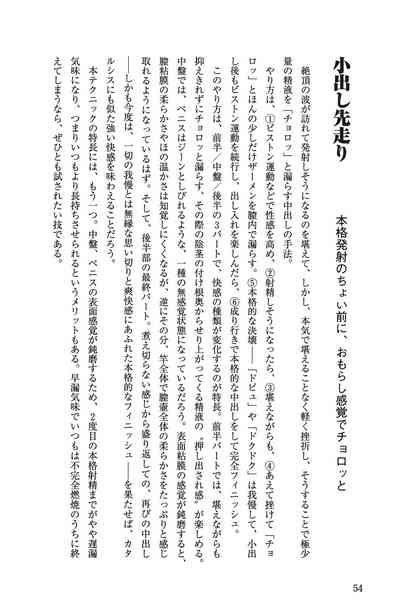 小出し先走り
本格発射のちょい前に、おもらし感覚でチョロッと
絶頂の波が訪れて発射しそうになるのを堪えて、しかし、本気で堪えることなく軽く挫折し、そうすることで極少
量の精液を「チョロッ」と漏らす中出しの手法。
やり方は、①ピストン運動などで性感を高め、②射精しそうになったら、③堪えながらも、④あえて挫けて「チョ
ロッ」とほんの少しだけザーメンを膣内で漏らす。⑤本格的な決壊――「ドピュ」や「ドクドク」は我慢して、小出
し後もピストン運動を続行し、出し入れを楽しんだら、⑥成り行きで本格的な中出しをして完全フィニッシュ。
このやり方は、前半／中盤／後半の３パートで、快感の種類が変化するのが特長。前半パートでは、堪えながらも
抑えきれずにチョロッと漏らす、その際の陰茎の付け根奥からせり上がってくる精液の〝押し出され感〟が楽しめる。
中盤では、ペニスはジーンとしびれるような、一種の無感覚状態になっているだろう。表面粘膜の感覚が鈍磨すると、
膣粘膜の柔らかさやほの温かさは知覚しにくくなるが、逆にその分、竿全体で膣圧の柔らかさをたっぷりと感じ
取れるようになっているはず。そして、後半部の最終パート。煮え切らない感じから盛り返しての、再びの中出し
――しかも今度は、一切の我慢とは無縁な思い切りと爽快感にあふれた本格的なフィニッシュ――を果たせば、カタ
ルシスにも似た強い快感を味わえることだろう。
本テクニックの特長には、もう一つ。中盤、ペニスの表面感覚が鈍磨するため、２度目の本格射精までがやや遅漏
気味になり、つまりいつもより長持ちさせられるというメリットもある。早漏気味でいつもは不完全燃焼のうちに終
えてしまうなら、ぜひとも試されたい技である。
54